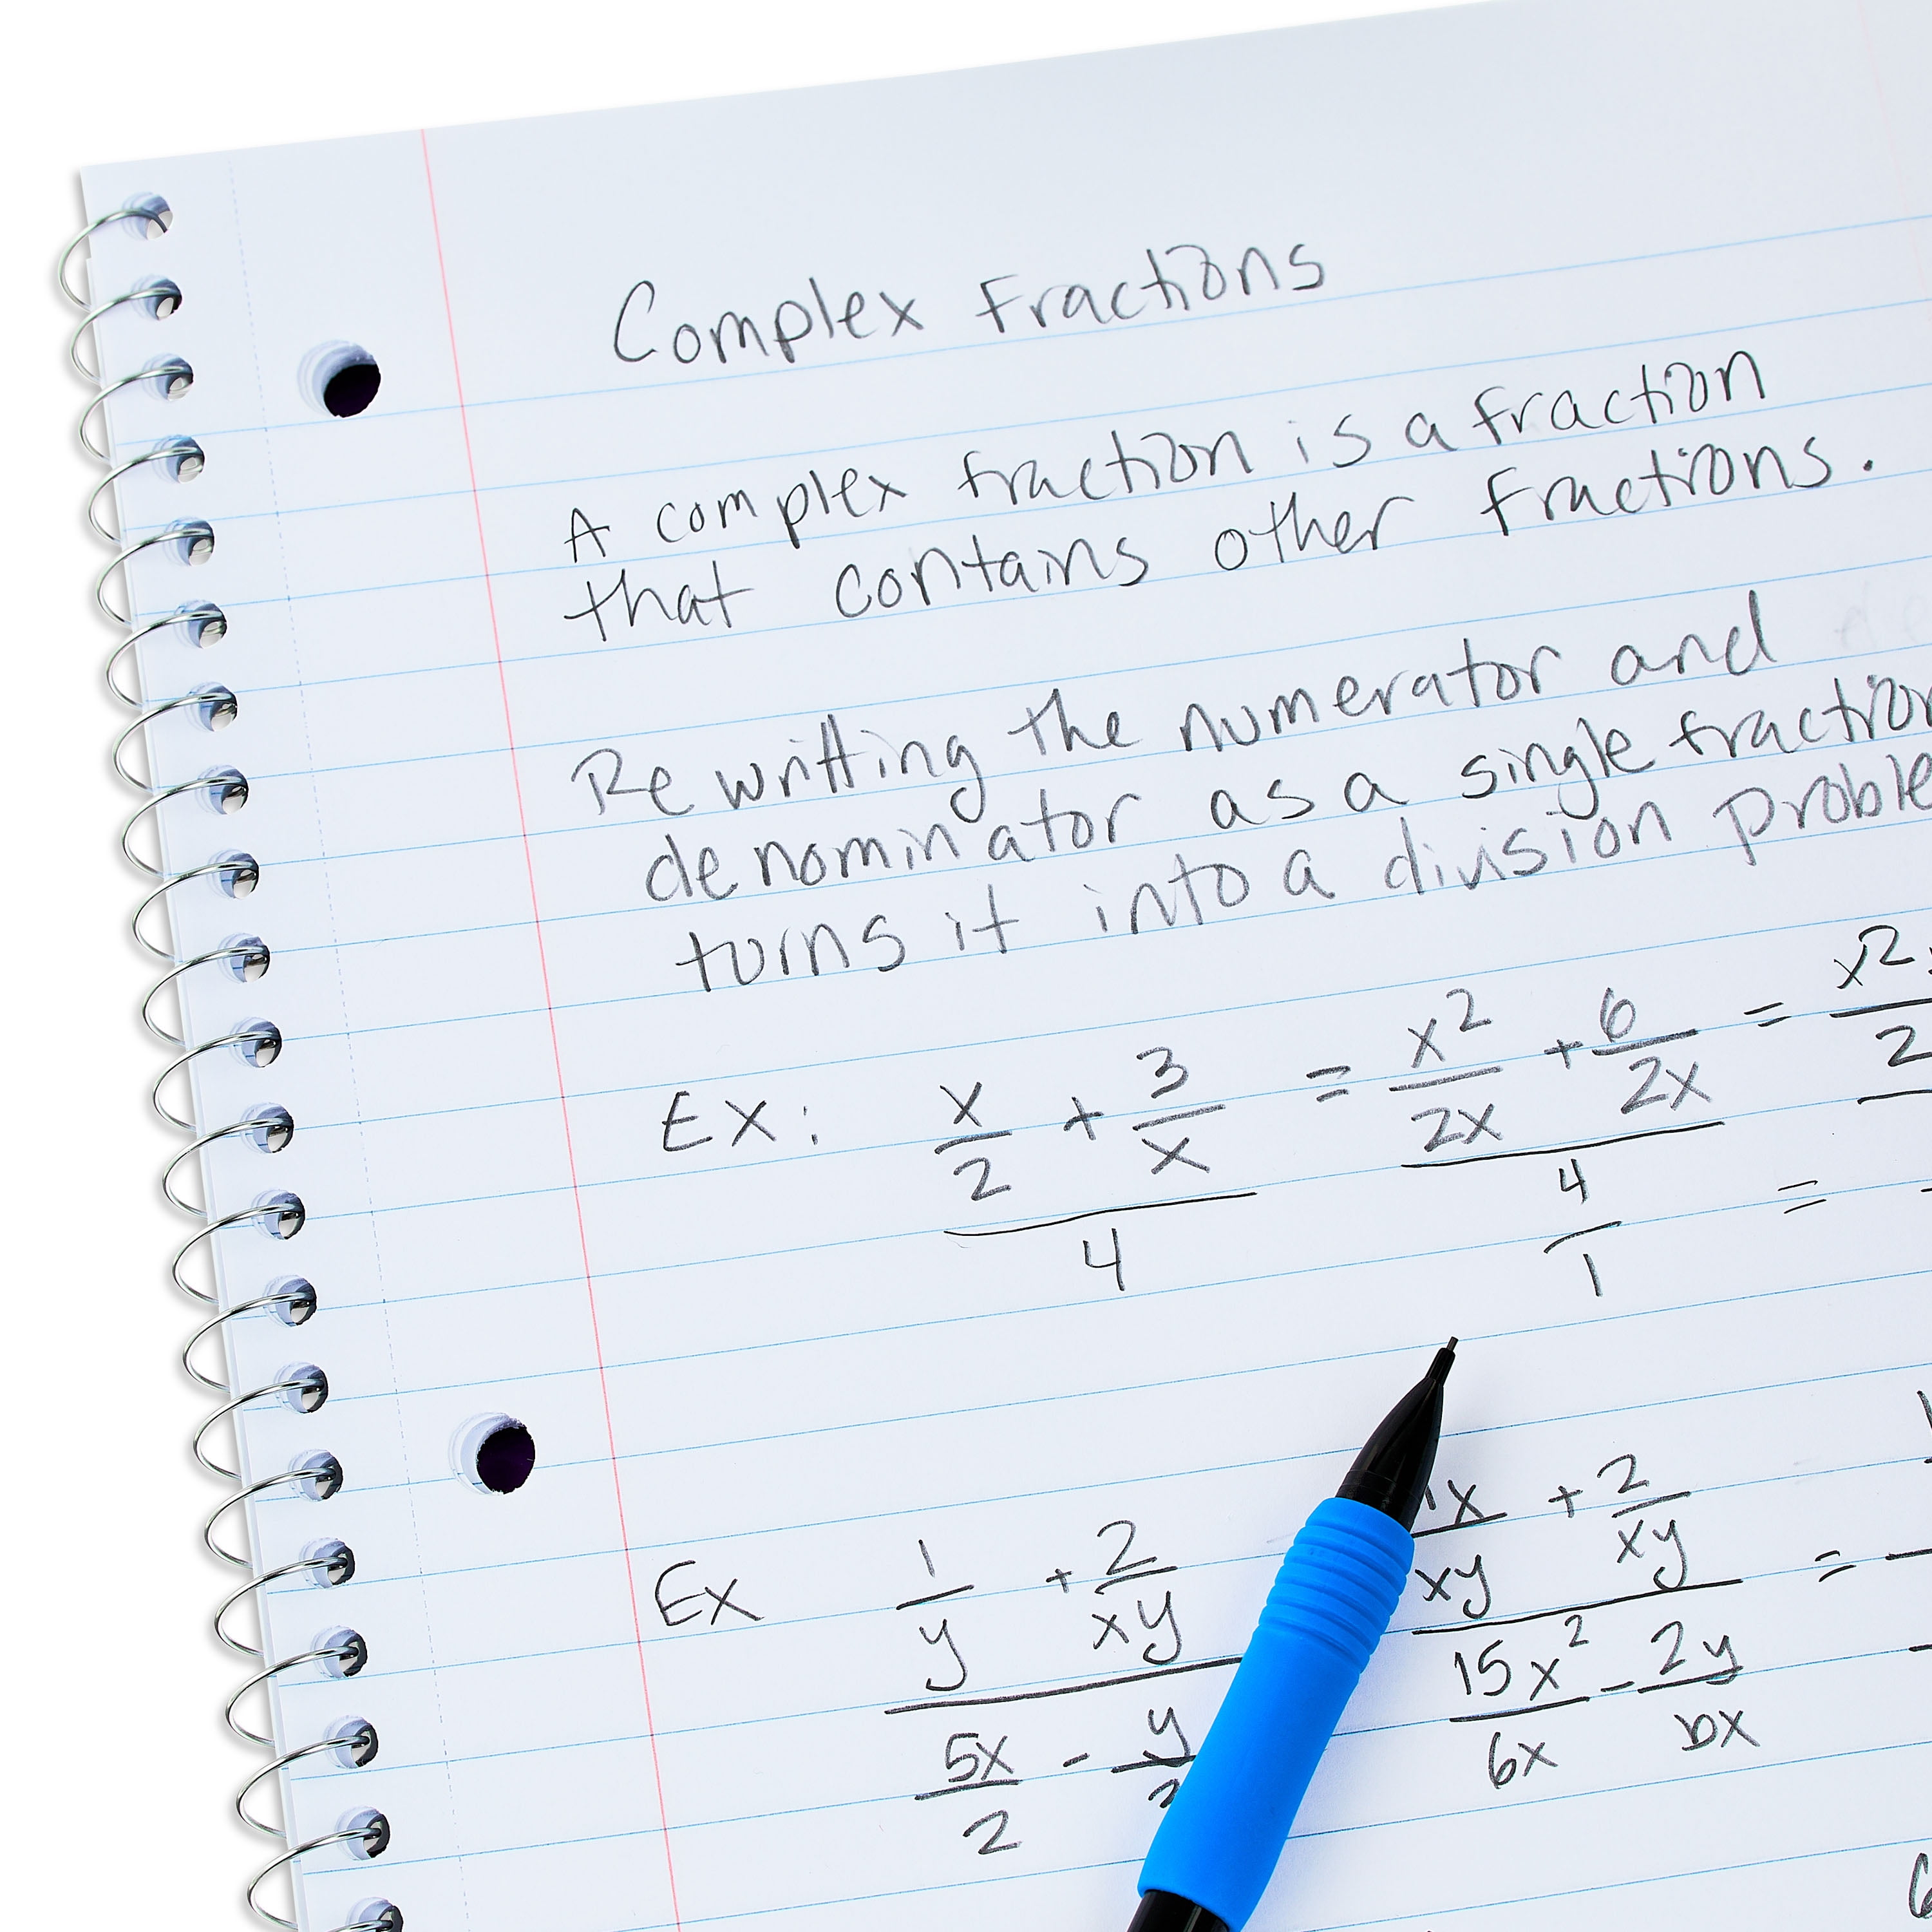 Complex Fractions
A complex fraction is a fraction
that contains other fractions.
Rewritting the numerator and
denominator as a single fraction
turns it into a division proble
Ex: x/2 + 3/x = x²/2x + 6/2x = x²
4 4/1 =
Ex 1/y + 2/xy 1x/xy + 2/xy =
5x/2 - y/ 15x²/6x - 2y/6x